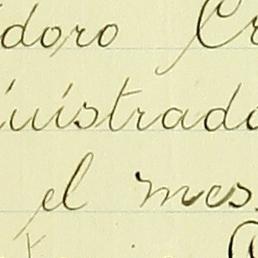 doro Cr
inistrado
el mes